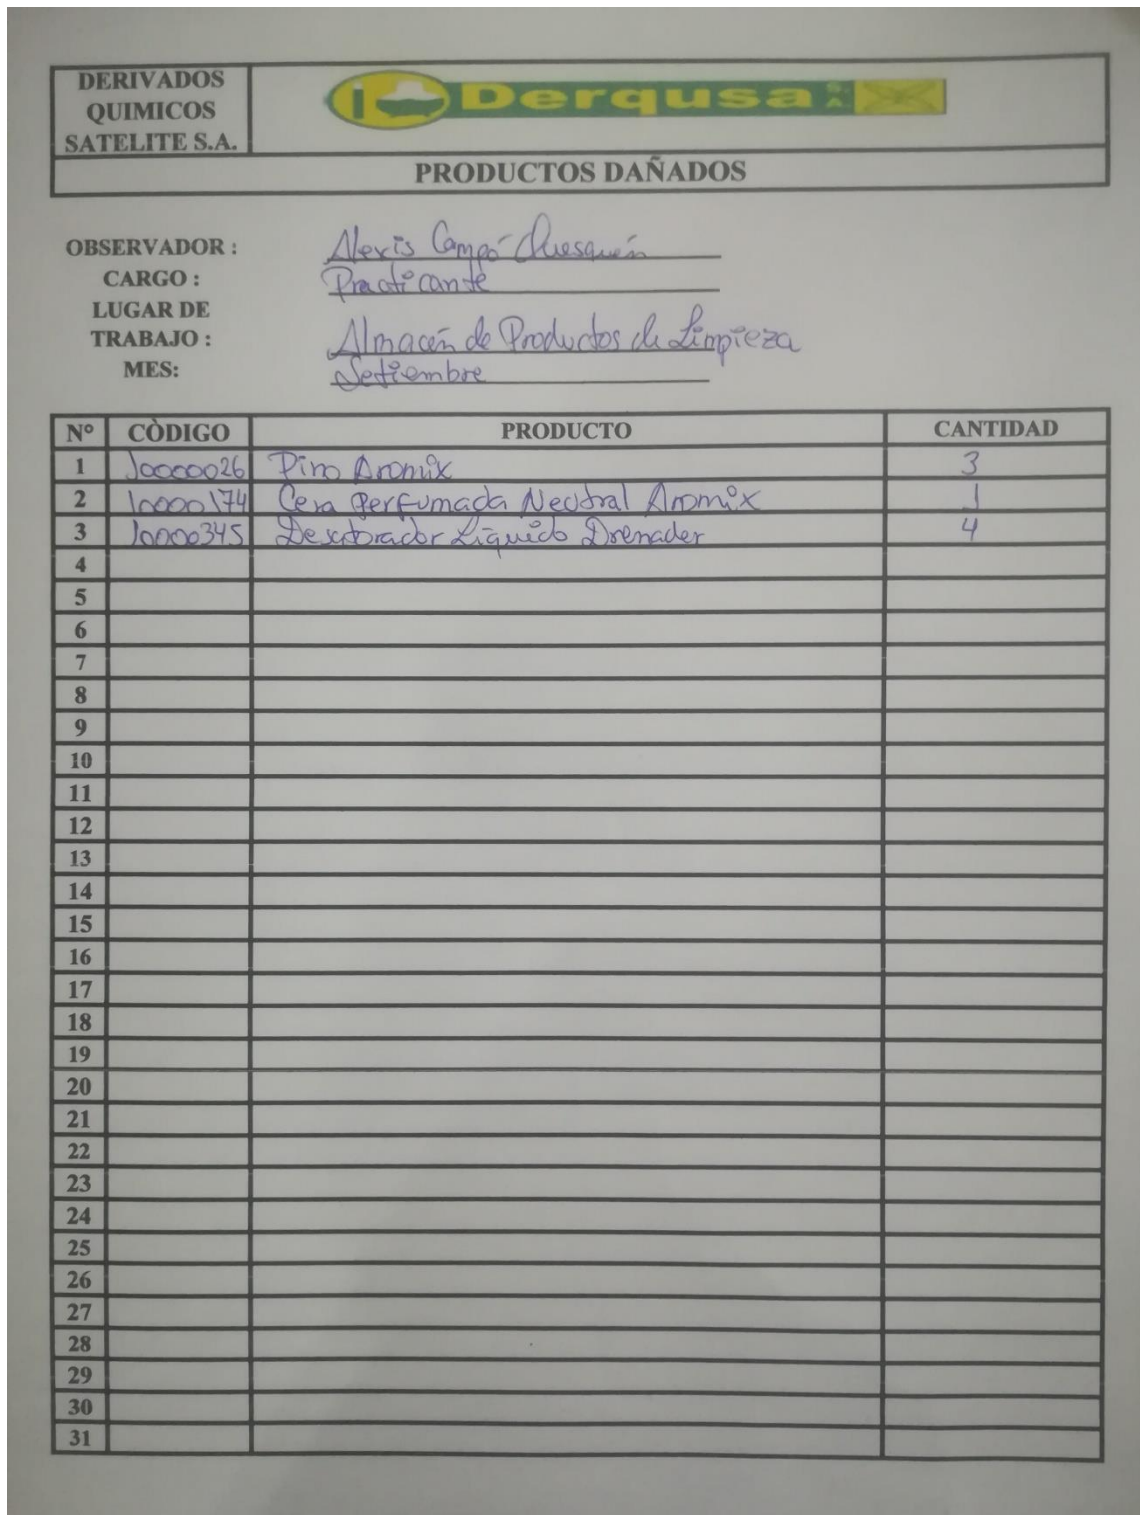 DERIVADOS
QUIMICOS
SATELITE S.A.
Derqusa S.A
PRODUCTOS DAÑADOS
OBSERVADOR : Alexis Campó Chesquén
CARGO : Practicante
LUGAR DE
TRABAJO : Almacén de Productos de Limpieza
MES: Setiembre
N° CÒDIGO PRODUCTO CANTIDAD
1 10000026 Pino Aromix 3
2 10000174 Cera Perfumada Neutral Aromix 1
3 10000345 Desatorador Líquido Drenader 4
4
5
6
7
8
9
10
11
12
13
14
15
16
17
18
19
20
21
22
23
24
25
26
27
28
29
30
31